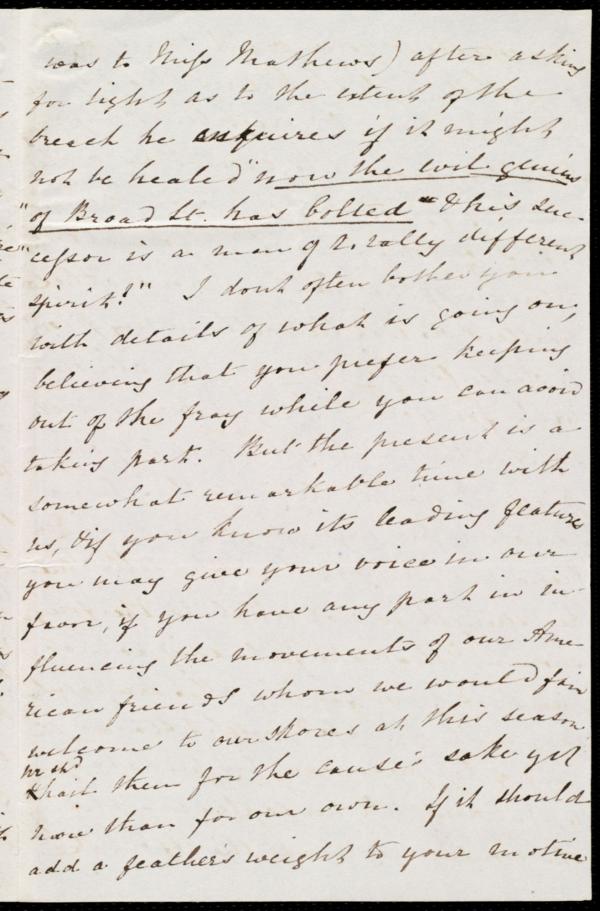 was to Miss Mathews) after asking
for light as to the extent of the
breach he enquires if it might
not be healed "now the evil genius
of Broad St. has bolted" & his suc-
cessor is a man of totally different
spirit!" I dont often bother you
with details of what is going on,
believing that you prefer keeping
out of the fray while you can avoid
taking part. But the present is a
somewhat remarkable time with
us, & if you know its leading features
you may give your voice in our
favor, if you have any part in in-
fluencing the movements of our Ame-
rican friends whom we would fain
welcome to our shores at this season
we shd
& hail them for the cause's sake yet
more than for our own. If it should
add a feather's weight to your motive